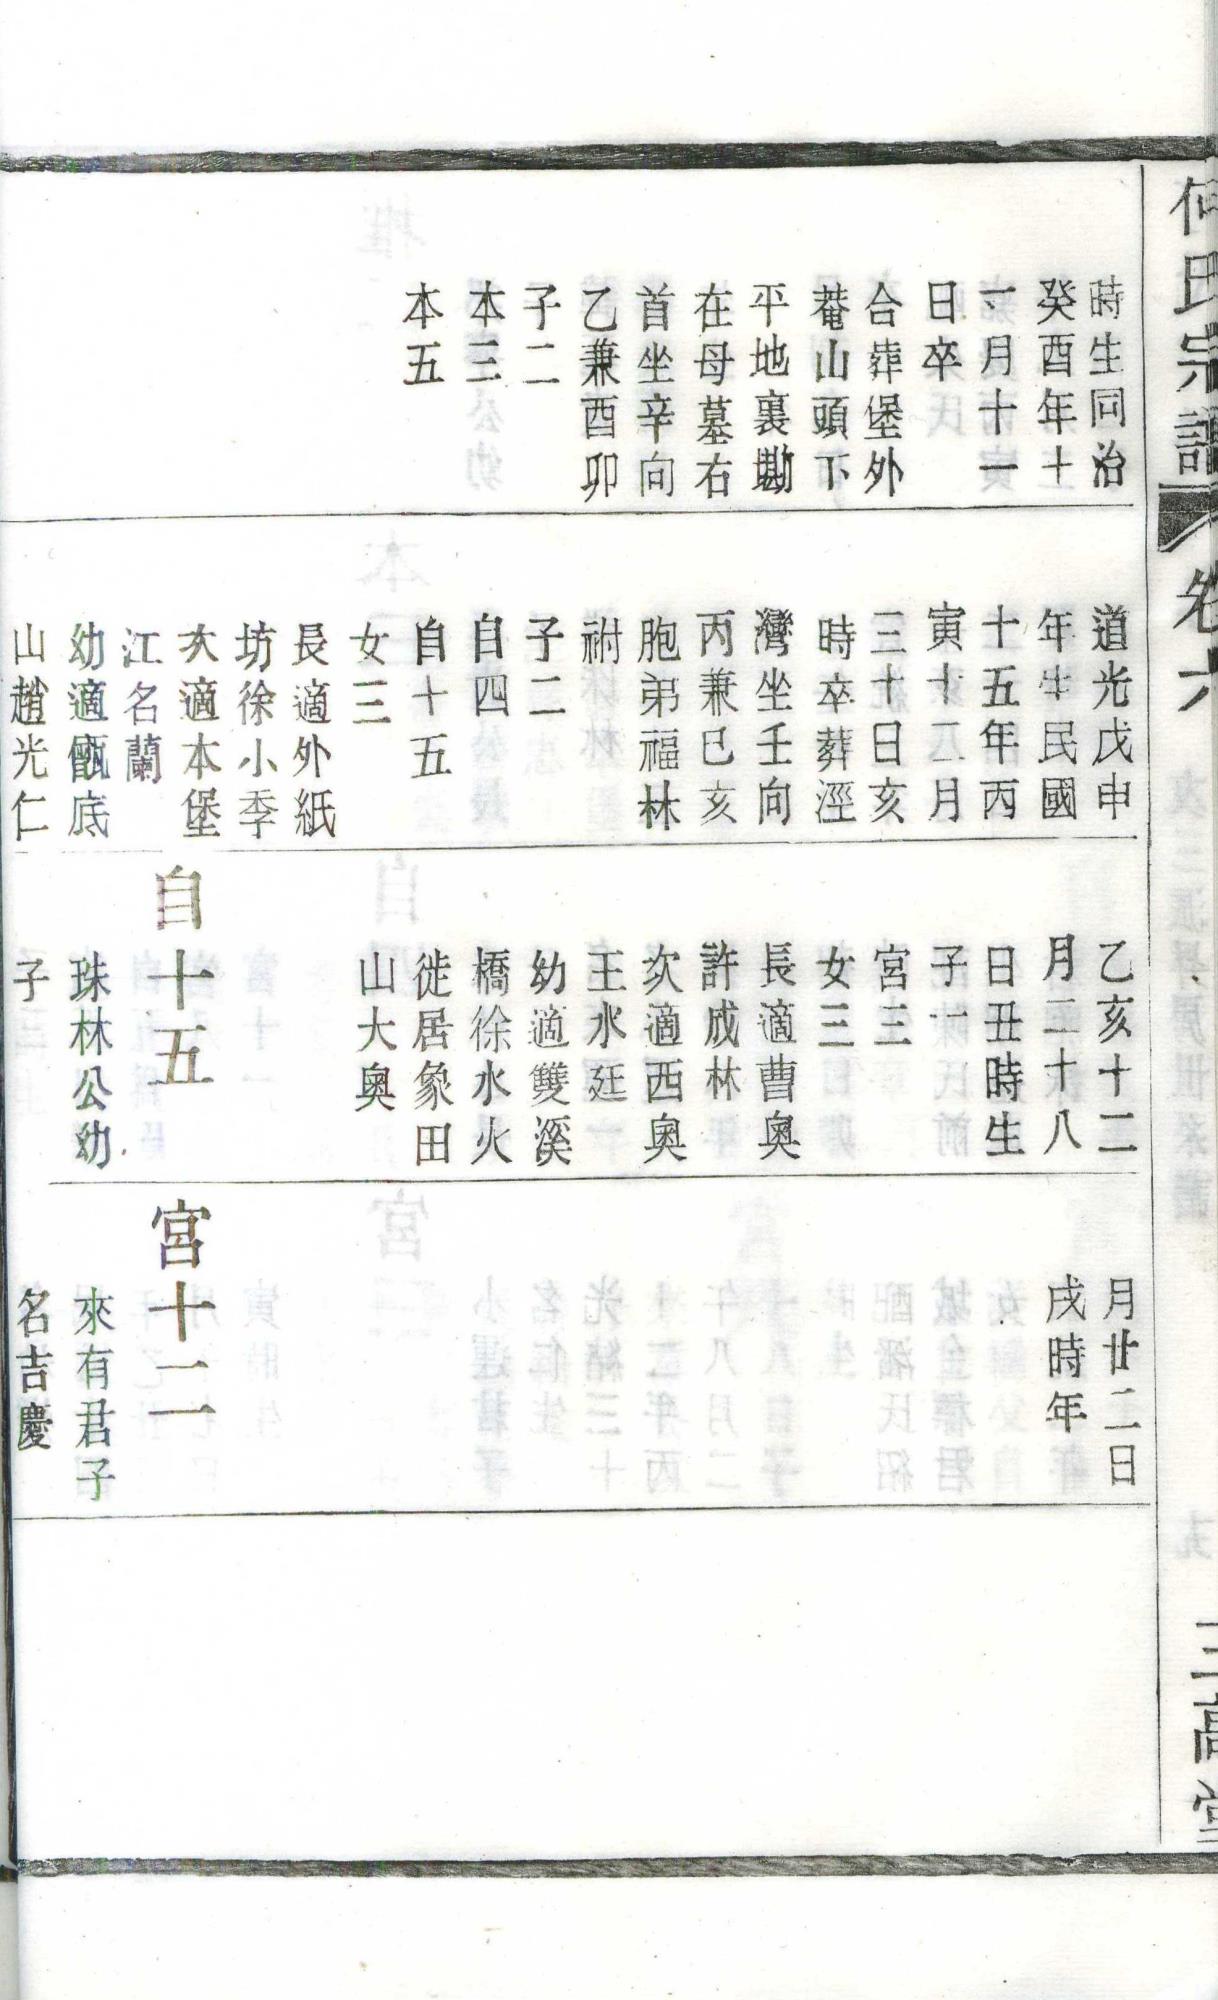 何氏宗譜
卷六
三萬堂
時生同治
癸酉年十
一月十一
日卒
合葬堡外
菴山頭下
平地裏墈
在母墓右
首坐辛向
乙兼酉卯
子二
本三
本五
道光戊申
年生民國
十五年丙
寅十二月
三十日亥
時卒葬涇
灣坐壬向
丙兼巳亥
胞弟福林
祔
子二
自四
自十五
女三
長適外紙
坊徐小季
次適本堡
江名蘭
幼適甑底
山趙光仁
乙亥十二
月二十八
日丑時生
子一
宮三
女三
長適曹奧
許成林
次適西奧
王水廷
幼適雙溪
橋徐水火
徙居象田
山大奧
自十五
珠林公幼
子
月廿二日
戌時年
宮十二
來有君子
名吉慶